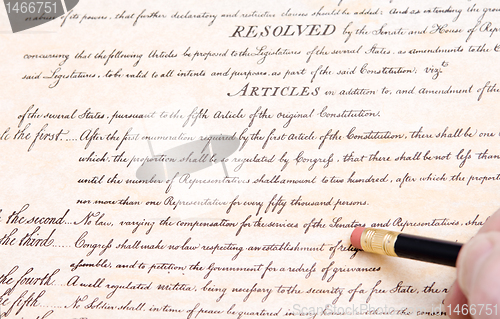 of its powers, that further declaratory and restrictive clauses should be added; And as extending the
RESOLVED by the Senate and House of Rep
concurring that the following Articles be proposed to the Legislatures of the several States, as amendments to the C
said Legislatures, to be valid to all intents and purposes, as part of the said Constitution; viz.
ARTICLES in addition to, and amendment of the
of the several States, pursuant to the fifth Article of the original Constitution.
le the first..... After the first enumeration required by the first Article of the Constitution, there shall be one
which, the proportion shall be so regulated by Congress, that there shall be not less than
until the number of Representatives shall amount to two hundred, after which the proporti
nor more than one Representative for every fifty thousand persons.
the second... No law, varying the compensation for the services of the Senators and Representatives, sha
the third..... Congress shall make no law respecting an establishment of relig
assemble, and to petition the Government for a redress of grievances
the fourth..... A well regulated militia, being necessary to the security of a free State, the
the fifth..... No Soldier shall, in time of peace be quartered in any house, without the consent
© cutcaster.com